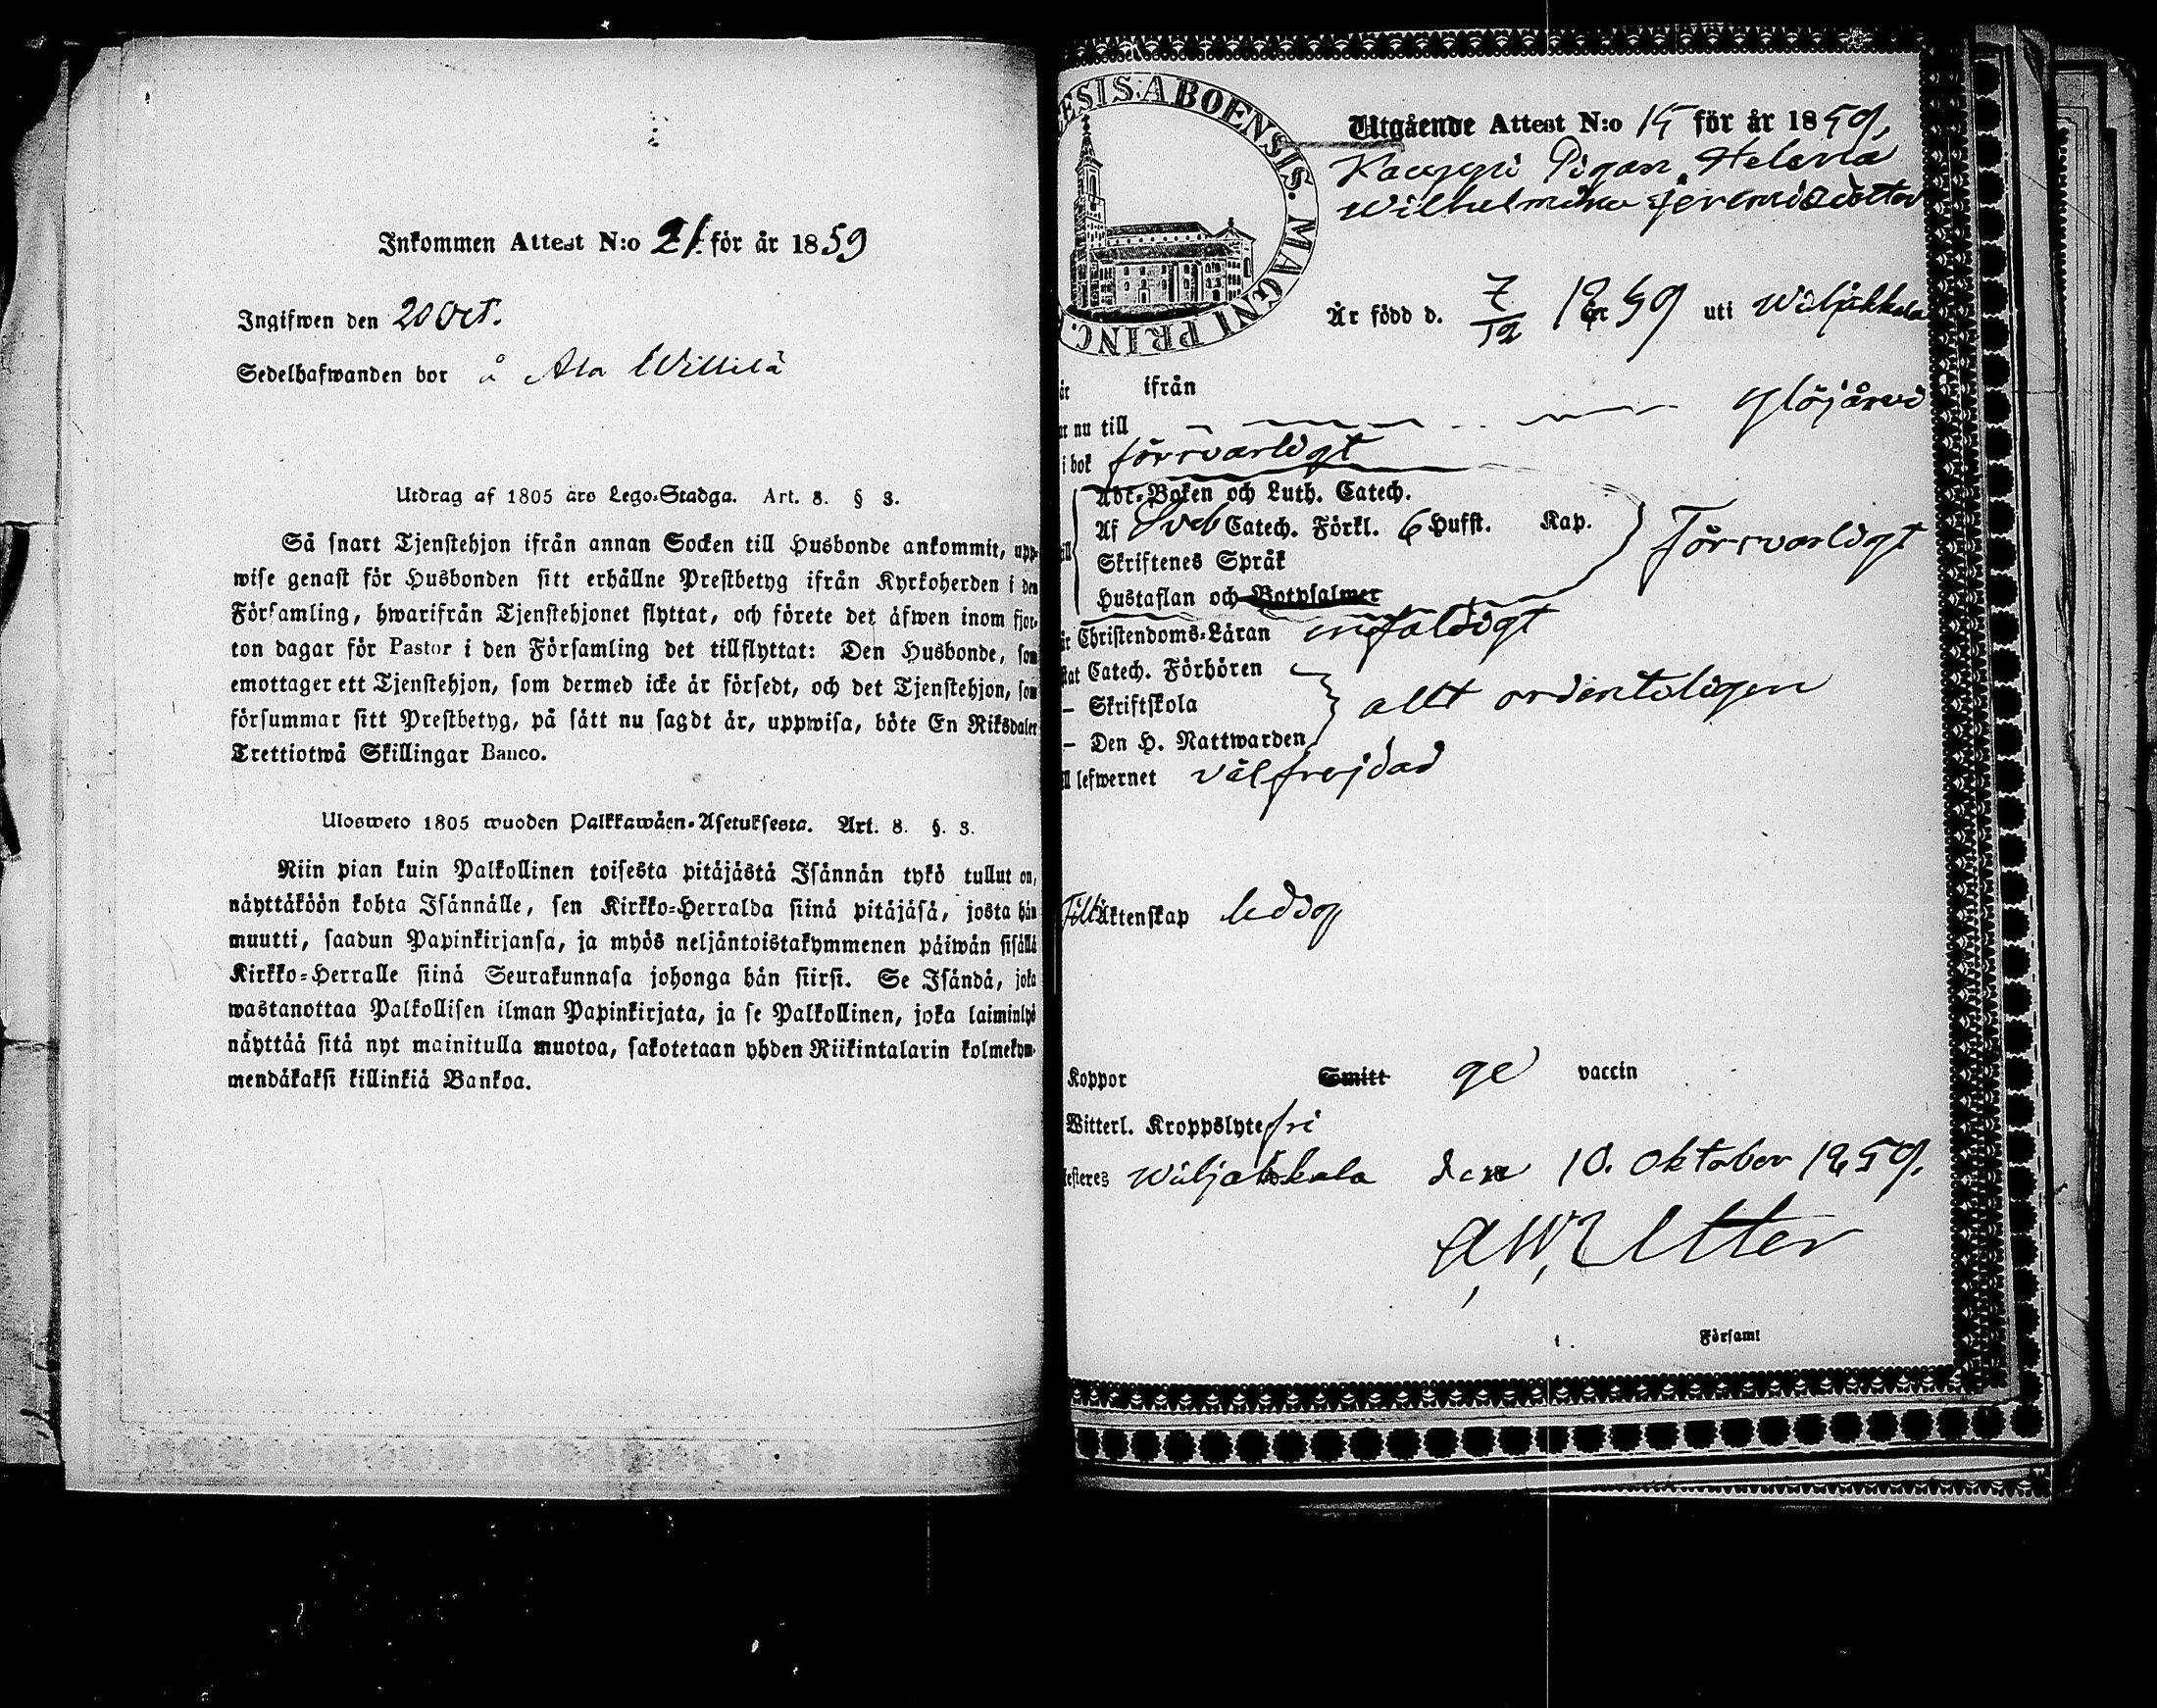 Inkommen Attest N:o 21. för år 1859
Ingifwen den 20 Oct.
Sedelhafwanden bor å Ala Willilä
Utdrag af 1805 års Lego-Stadga. Art. 8. § 3.
Så snart Tjenstehjon ifrån annan Socken till Husbonde ankommit, upp-
wise genast för Husbonden sitt erhållne Prestbetyg ifrån Kyrkoherden i den
Församling, hwarifrån Tjenstehjonet flyttat, och förete det äfwen inom fjor-
ton dagar för Pastor i den Församling det tillflyttat: Den Husbonde, som
emottager ett Tjenstehjon, som dermed icke är försedt, och det Tjenstehjon, som
försummar sitt Prestbetyg, på sätt nu sagdt är, uppwisa, böte En Riksdaler
Trettiotwå Skillingar Banco.
Ulosweto 1805 wuoden Palkkawäen-Asetuksesta. Art. 8. §. 3.
Niin pian kuin Palkollinen toisesta pitäjästä Isännän tykö tullut on,
näyttäköön kohta Isännälle, sen Kirkko-Herralda siinä pitäjäsä, josta hän
muutti, saadun Papinkirjansa, ja myös neljäntoistakymmenen päiwän sisällä
Kirkko-Herralle siinä Seurakunnasa johonga hän siirsi. Se Isändä, joka
wastanottaa Palkollisen ilman Papinkirjata, ja se Palkollinen, joka laiminlyö
näyttää sitä nyt mainitulla muotoa, sakotetaan yhden Riikintalarin kolmekym-
mendäkaksi killinkiä Bankoa.
ESIS: ABOENSIS. MAGNI PRINC.
Utgående Attest N:o 15 för år 1859.
Kauppi Pigan Helena
Wilhelmina Jeremiædotter
Är född d. 7/12 18 uti Wiljakkala
är ifrån
nu till Ylöjärvi
i bok försvarligt
Abc-Boken och Luth. Catech.
Af Sveb Catech. Förkl. 6 Hufst. Kap. Försvarligt
Skriftenes Språk
Hustaflan och Botpsalmer
Christendoms-Läran enfaldigt
Catech. Förhören
— Skriftskola allt ordenteligen
— Den H. Nattwarden
lefwernet välfrejdad
Till Äktenskap ledig
Koppor Smitt ge vaccin
Witterl. Kroppslyte fri
Wiljakkala den 10. Oktober 1859.
A. W. Utter
Församl